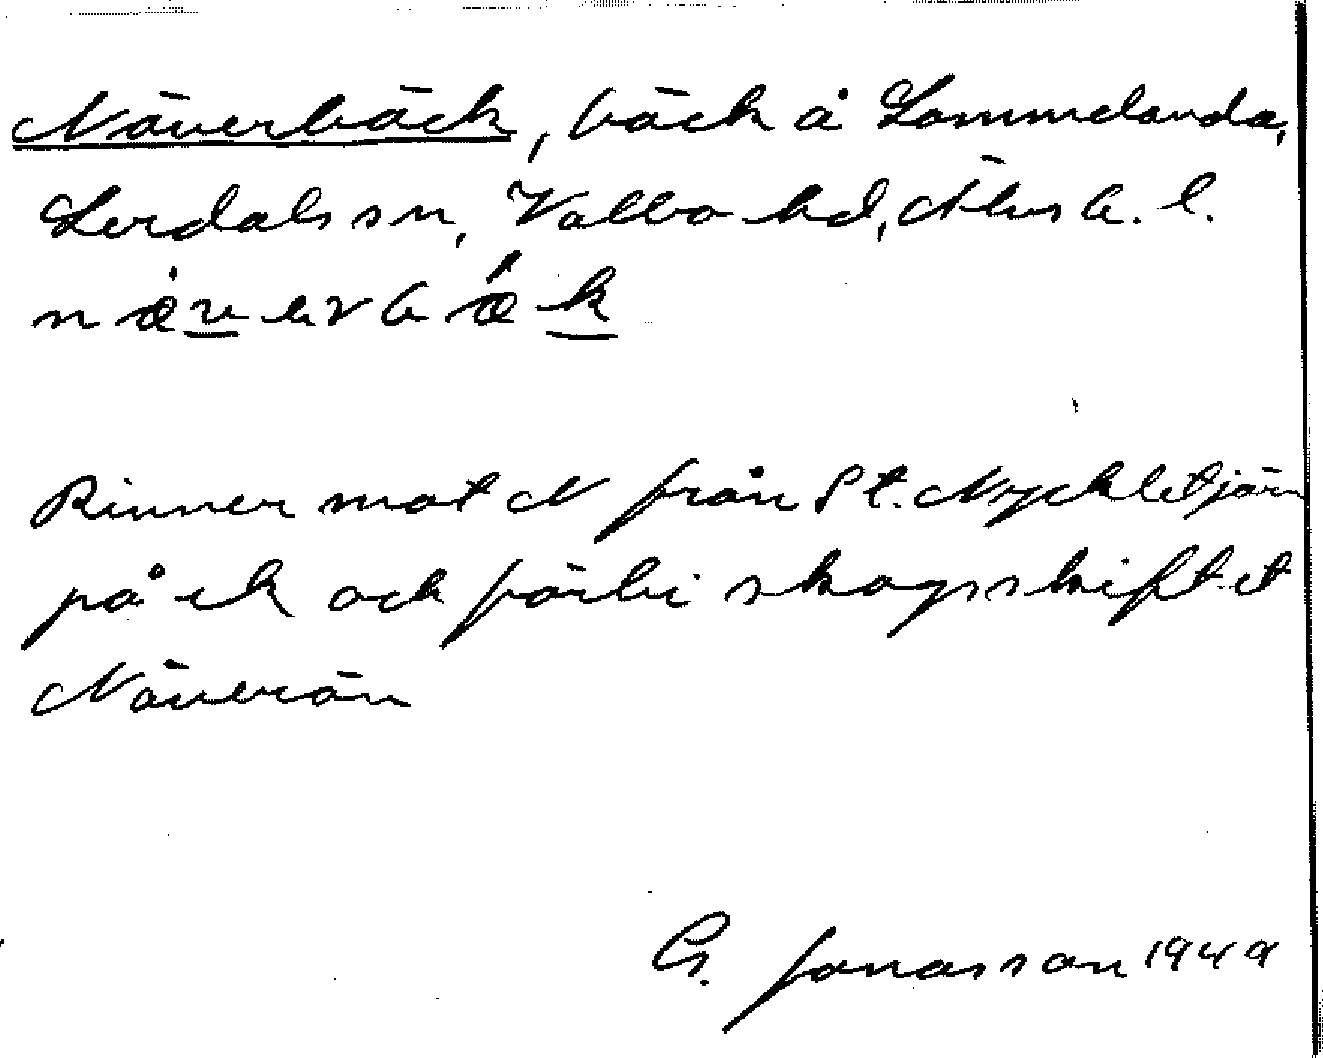 Näverbäck, bäck å Lommelanda,
Lerdals sn, Valbo hd, Älvsb. l.
nævərbæk
Rinner mot N från St. Nyckletjärn
på ek och förbi skogsskiftet
Näverön
G. Jonasson 1949